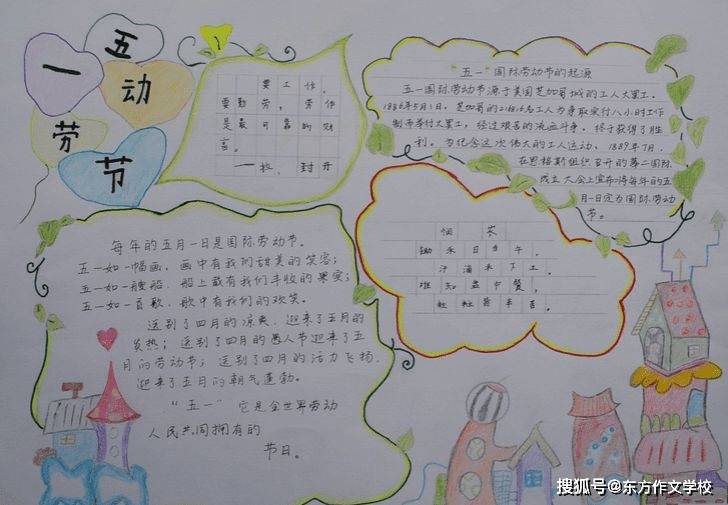 五一
劳动
节
要工作,
要勤劳,劳作
是最可靠的财
富。
——拉.封丹
"五一"国际劳动节的起源
五一国际劳动节源于美国芝加哥城的工人大罢工。
1886年5月1日,芝加哥的21.6万名工人为争取实行八小时工作
制而举行大罢工,经过艰苦的流血斗争,终于获得了胜
利。为纪念这次伟大的工人运动,1889年7月,
在恩格斯组织召开的第二国际
成立大会上宣布将每年的五
月一日定为国际劳动
节。
悯 农
锄禾日当午,
汗滴禾下土。
谁知盘中餐,
粒粒皆辛苦。
每年的五月一日是国际劳动节。
五一如一幅画,画中有我们甜美的笑容;
五一如一艘船,船上载有我们丰收的果实;
五一如一首歌,歌中有我们的欢笑。
送别了四月的凉爽,迎来了五月的
炎热;送别了四月的愚人节迎来了五
月的劳动节;送别了四月的活力飞扬,
迎来了五月的朝气蓬勃。
"五一"它是全世界劳动
人民共同拥有的
节日。
搜狐号@东方作文学校